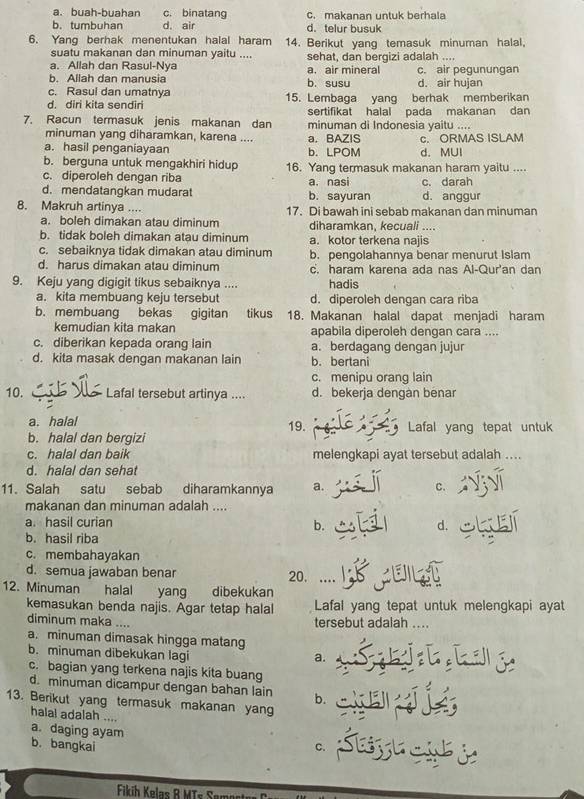 a. buah-buahan c. binatang
b. tumbuhan d. air
6. Yang berhak menentukan halal haram
suatu makanan dan minuman yaitu ....
a. Allah dan Rasul-Nya
b. Allah dan manusia
c. Rasul dan umatnya
d. diri kita sendiri
7. Racun termasuk jenis makanan dan
minuman yang diharamkan, karena ....
a. hasil penganiayaan
b. berguna untuk mengakhiri hidup
c. diperoleh dengan riba
d. mendatangkan mudarat
8. Makruh artinya ....
a. boleh dimakan atau diminum
b. tidak boleh dimakan atau diminum
c. sebaiknya tidak dimakan atau diminum
d. harus dimakan atau diminum
9. Keju yang digigit tikus sebaiknya ....
a. kita membuang keju tersebut
b. membuang bekas gigitan tikus
kemudian kita makan
c. diberikan kepada orang lain
d. kita masak dengan makanan lain
10. حَلَالًا طَيِّبًا Lafal tersebut artinya ....
a. halal
b. halal dan bergizi
c. halal dan baik
d. halal dan sehat
11. Salah satu sebab diharamkannya
makanan dan minuman adalah ....
a. hasil curian
b. hasil riba
c. membahayakan
d. semua jawaban benar
12. Minuman halal yang dibekukan
kemasukan benda najis. Agar tetap halal
diminum maka ....
a. minuman dimasak hingga matang
b. minuman dibekukan lagi
c. bagian yang terkena najis kita buang
d. minuman dicampur dengan bahan lain
13. Berikut yang termasuk makanan yang
halal adalah ....
a. daging ayam
b. bangkai
c. makanan untuk berhala
d. telur busuk
14. Berikut yang temasuk minuman halal,
sehat, dan bergizi adalah ....
a. air mineral c. air pegunungan
b. susu d. air hujan
15. Lembaga yang berhak memberikan
sertifikat halal pada makanan dan
minuman di Indonesia yaitu ....
a. BAZIS c. ORMAS ISLAM
b. LPOM d. MUI
16. Yang termasuk makanan haram yaitu ....
a. nasi c. darah
b. sayuran d. anggur
17. Di bawah ini sebab makanan dan minuman
diharamkan, kecuali ....
a. kotor terkena najis
b. pengolahannya benar menurut Islam
c. haram karena ada nas Al-Qur'an dan
hadis
d. diperoleh dengan cara riba
18. Makanan halal dapat menjadi haram
apabila diperoleh dengan cara ....
a. berdagang dengan jujur
b. bertani
c. menipu orang lain
d. bekerja dengan benar
19. وَيُحَرِّمُ عَلَيْهِمُ Lafal yang tepat untuk
melengkapi ayat tersebut adalah ....
a. اَلْخَمْرُ c. اَلْاَزْلَامُ
b. الْخَبَائِثَ d. اَلطَّيِّبَاتِ
20. .... يَاأَيُّهَا النَّاسُ كُلُوْا
Lafal yang tepat untuk melengkapi ayat
tersebut adalah ....
a.
b. وَيُحِلُّ لَهُمُ الطَّيِّبَاتِ
c. مِنْ طَيِّبَاتِ مَا رَزَقْنَاكُمْ
Fikih Kelas 8 MTs